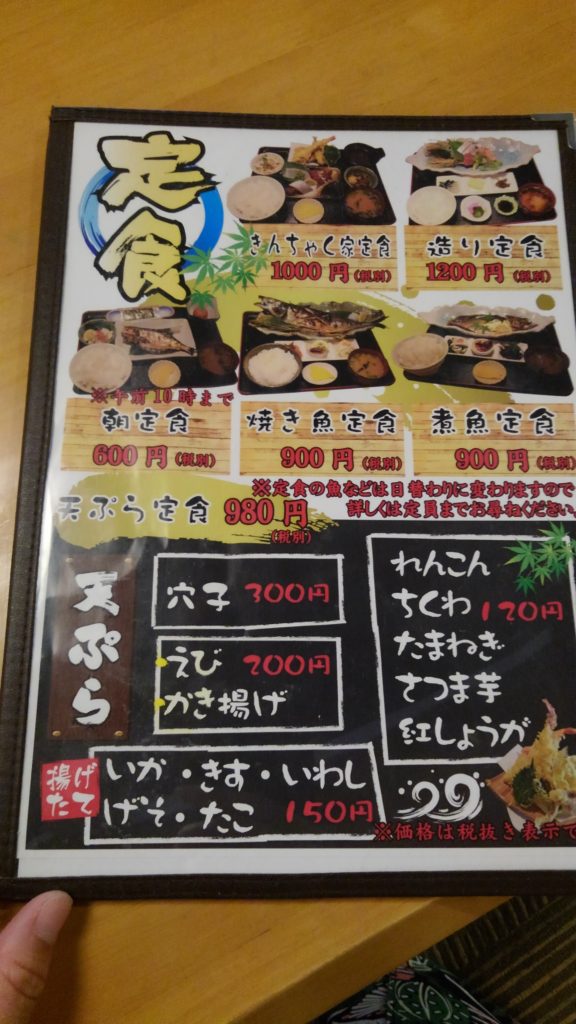 定食
きんちゃく家定食
1000円(税別)
造り定食
1200円(税別)
※午前10時まで
朝定食
600円(税別)
焼き魚定食
900円(税別)
煮魚定食
900円(税別)
天ぷら定食 980円
(税別)
※定食の魚などは日替わりに変わりますので
詳しくは定員までお尋ねください。
天ぷら
穴子 300円
えび 200円
かき揚げ
れんこん
ちくわ 120円
たまねぎ
さつま芋
紅しょうが
揚げ
たて
いか・きす・いわし
げそ・たこ 150円
※価格は税抜き表示で